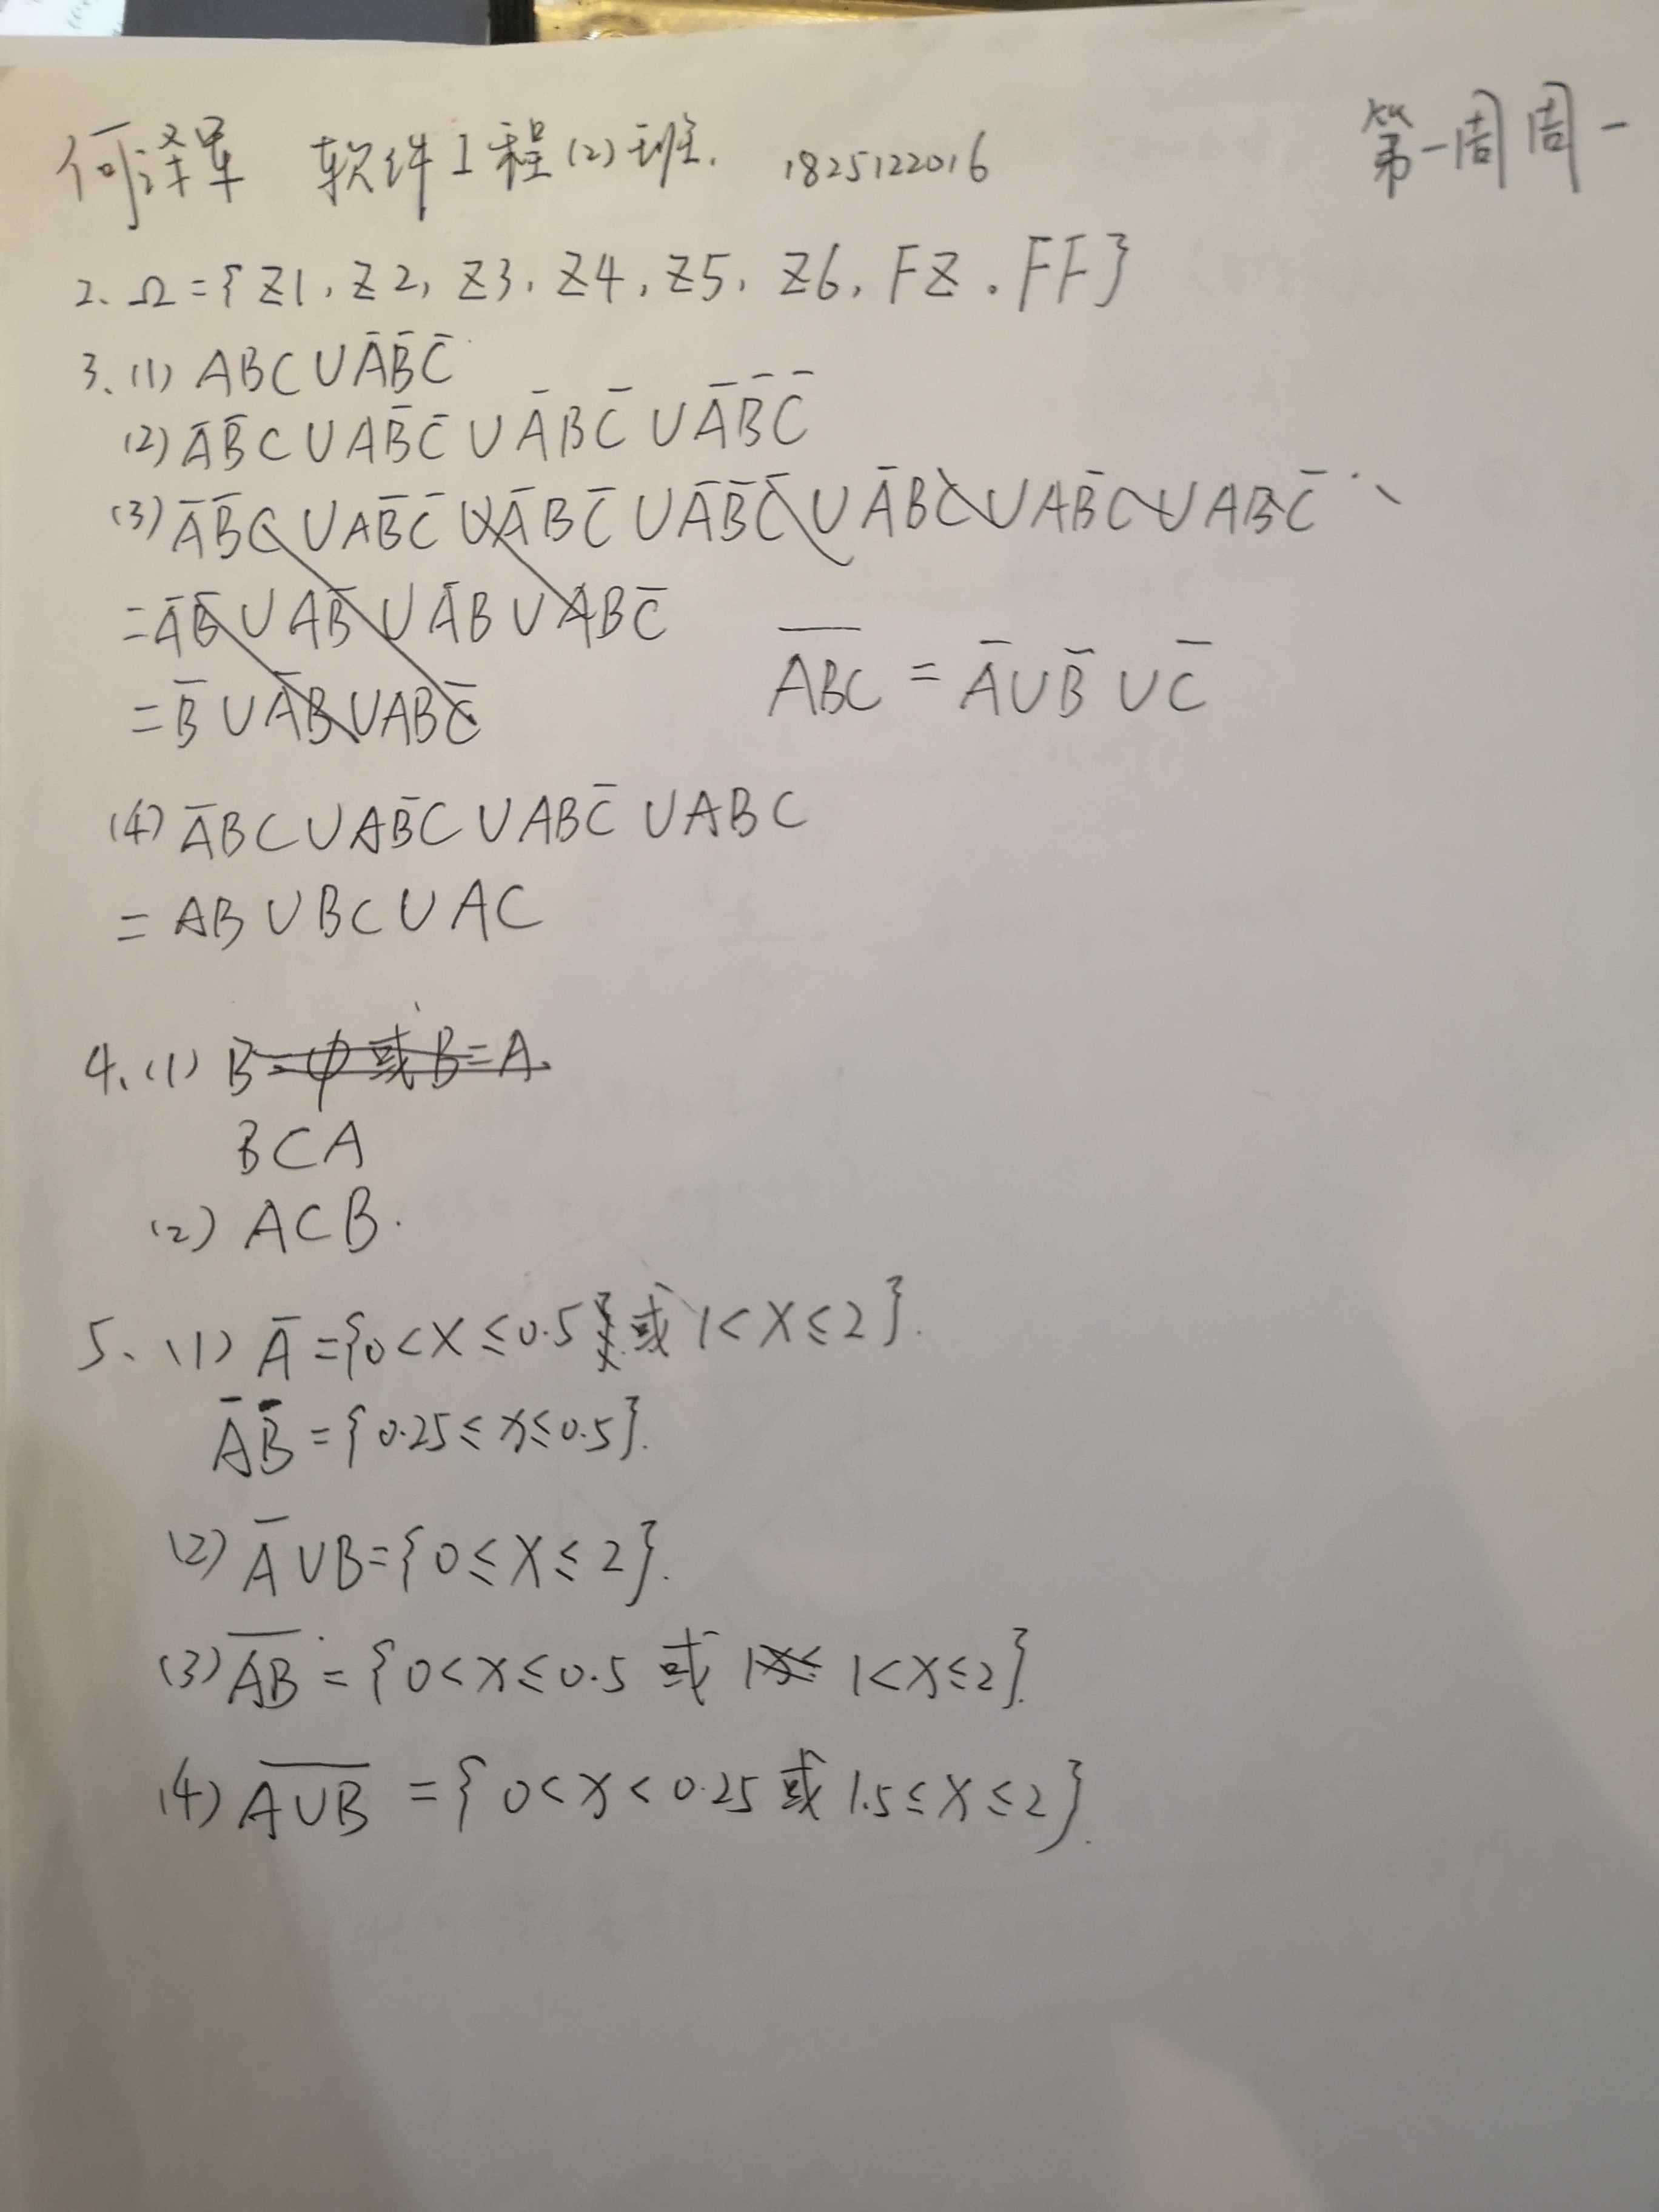 何泽军 软件工程(2)班. 1825122016 第一周周一
2、Ω={Z1, Z2, Z3, Z4, Z5, Z6, FZ, FF}
3、(1) ABC∪A̅B̅C̅
(2) A̅B̅C∪AB̅C̅∪A̅BC̅∪A̅B̅C̅
(3) A̅B̅C∪AB̅C̅∪A̅BC̅∪A̅B̅C̅∪A̅BC∪AB̅C∪ABC̅
=A̅B̅∪AB̅∪A̅B∪ABC̅
=B̅∪A̅B∪ABC̅
A̅B̅C̅ = A̅∪B̅∪C̅
(4) A̅BC∪AB̅C∪ABC̅∪ABC
= AB∪BC∪AC
4、(1) B=φ或B=A.
B⊂A
(2) A⊂B.
5、(1) A̅={0<x≤0.5 或 1<x≤2}.
A̅B̅={0.25≤x≤0.5}.
(2) A̅∪B={0≤x≤2}.
(3) A̅B̅={0<x≤0.5 或 1<x≤2}.
(4) A̅∪̅B̅={0<x<0.25 或 1.5≤x≤2}.